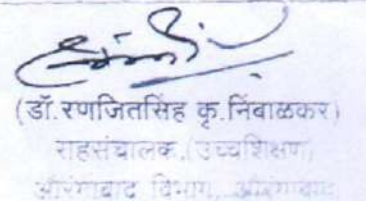 (डॉ.रणजितसिंह कृ.निंबाळकर)
राहसंचालक,(उच्चशिक्षण)
औरंगाबाद विभाग, औरंगाबाद